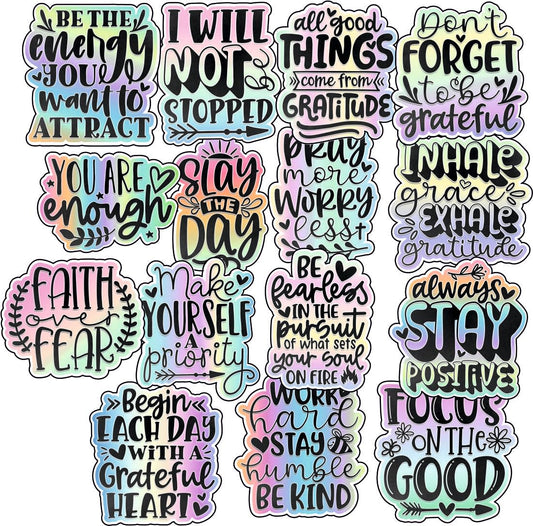 BE THE
energy
YOU
want to
ATTRACT
I WILL
NOT
be
STOPPED
all good
THINGS
come from
GRATITUDE
Don't
FORGET
to be
grateful
YOU ARE
enough
SLAY
THE
DAY
PRAY
more
WORRY
less
INHALE
grace
EXHALE
gratitude
FAITH
over
FEAR
Make
YOURSELF
A
priority
BE
fearless
IN THE
pursuit
OF WHAT SETS
your soul
ON FIRE
always
STAY
POSITIVE
Begin
EACH DAY
WITH A
Grateful
HEART
WORK
hard
STAY
humble
BE KIND
FOCUS
ON THE
GOOD